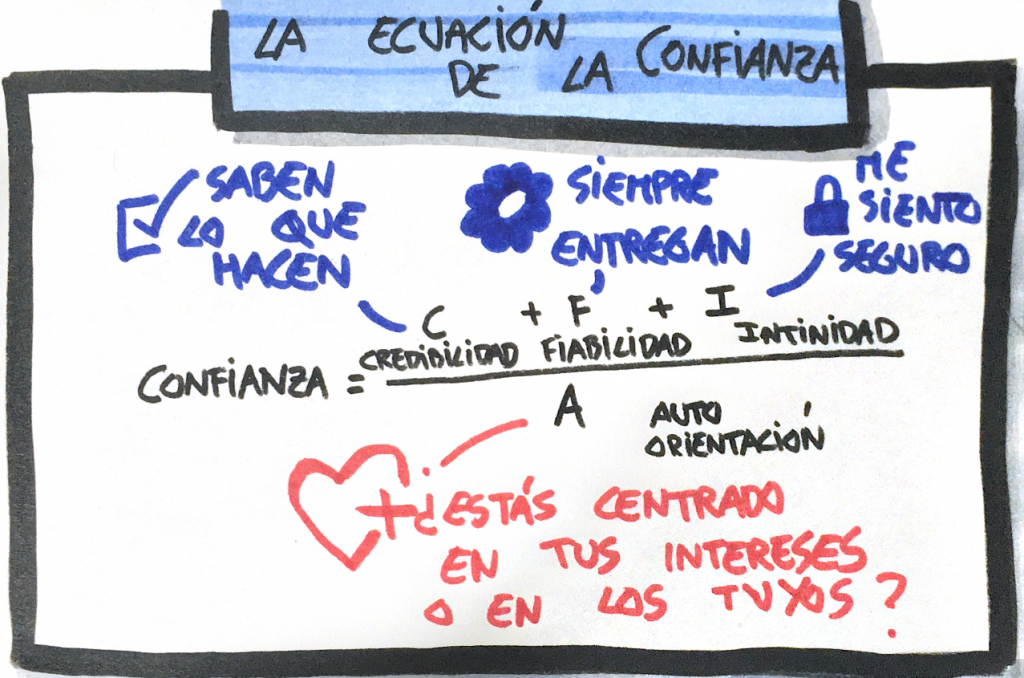 LA ECUACIÓN
DE LA CONFIANZA
SABEN
LO QUE
HACEN
SIEMPRE
ENTREGAN
ME
SIENTO
SEGURO
C + F + I
CREDIBILIDAD FIABILIDAD INTINIDAD
CONFIANZA =
A
AUTO
ORIENTACIÓN
+¿ESTÁS CENTRADO
EN TUS INTERESES
O EN LOS TUYOS?